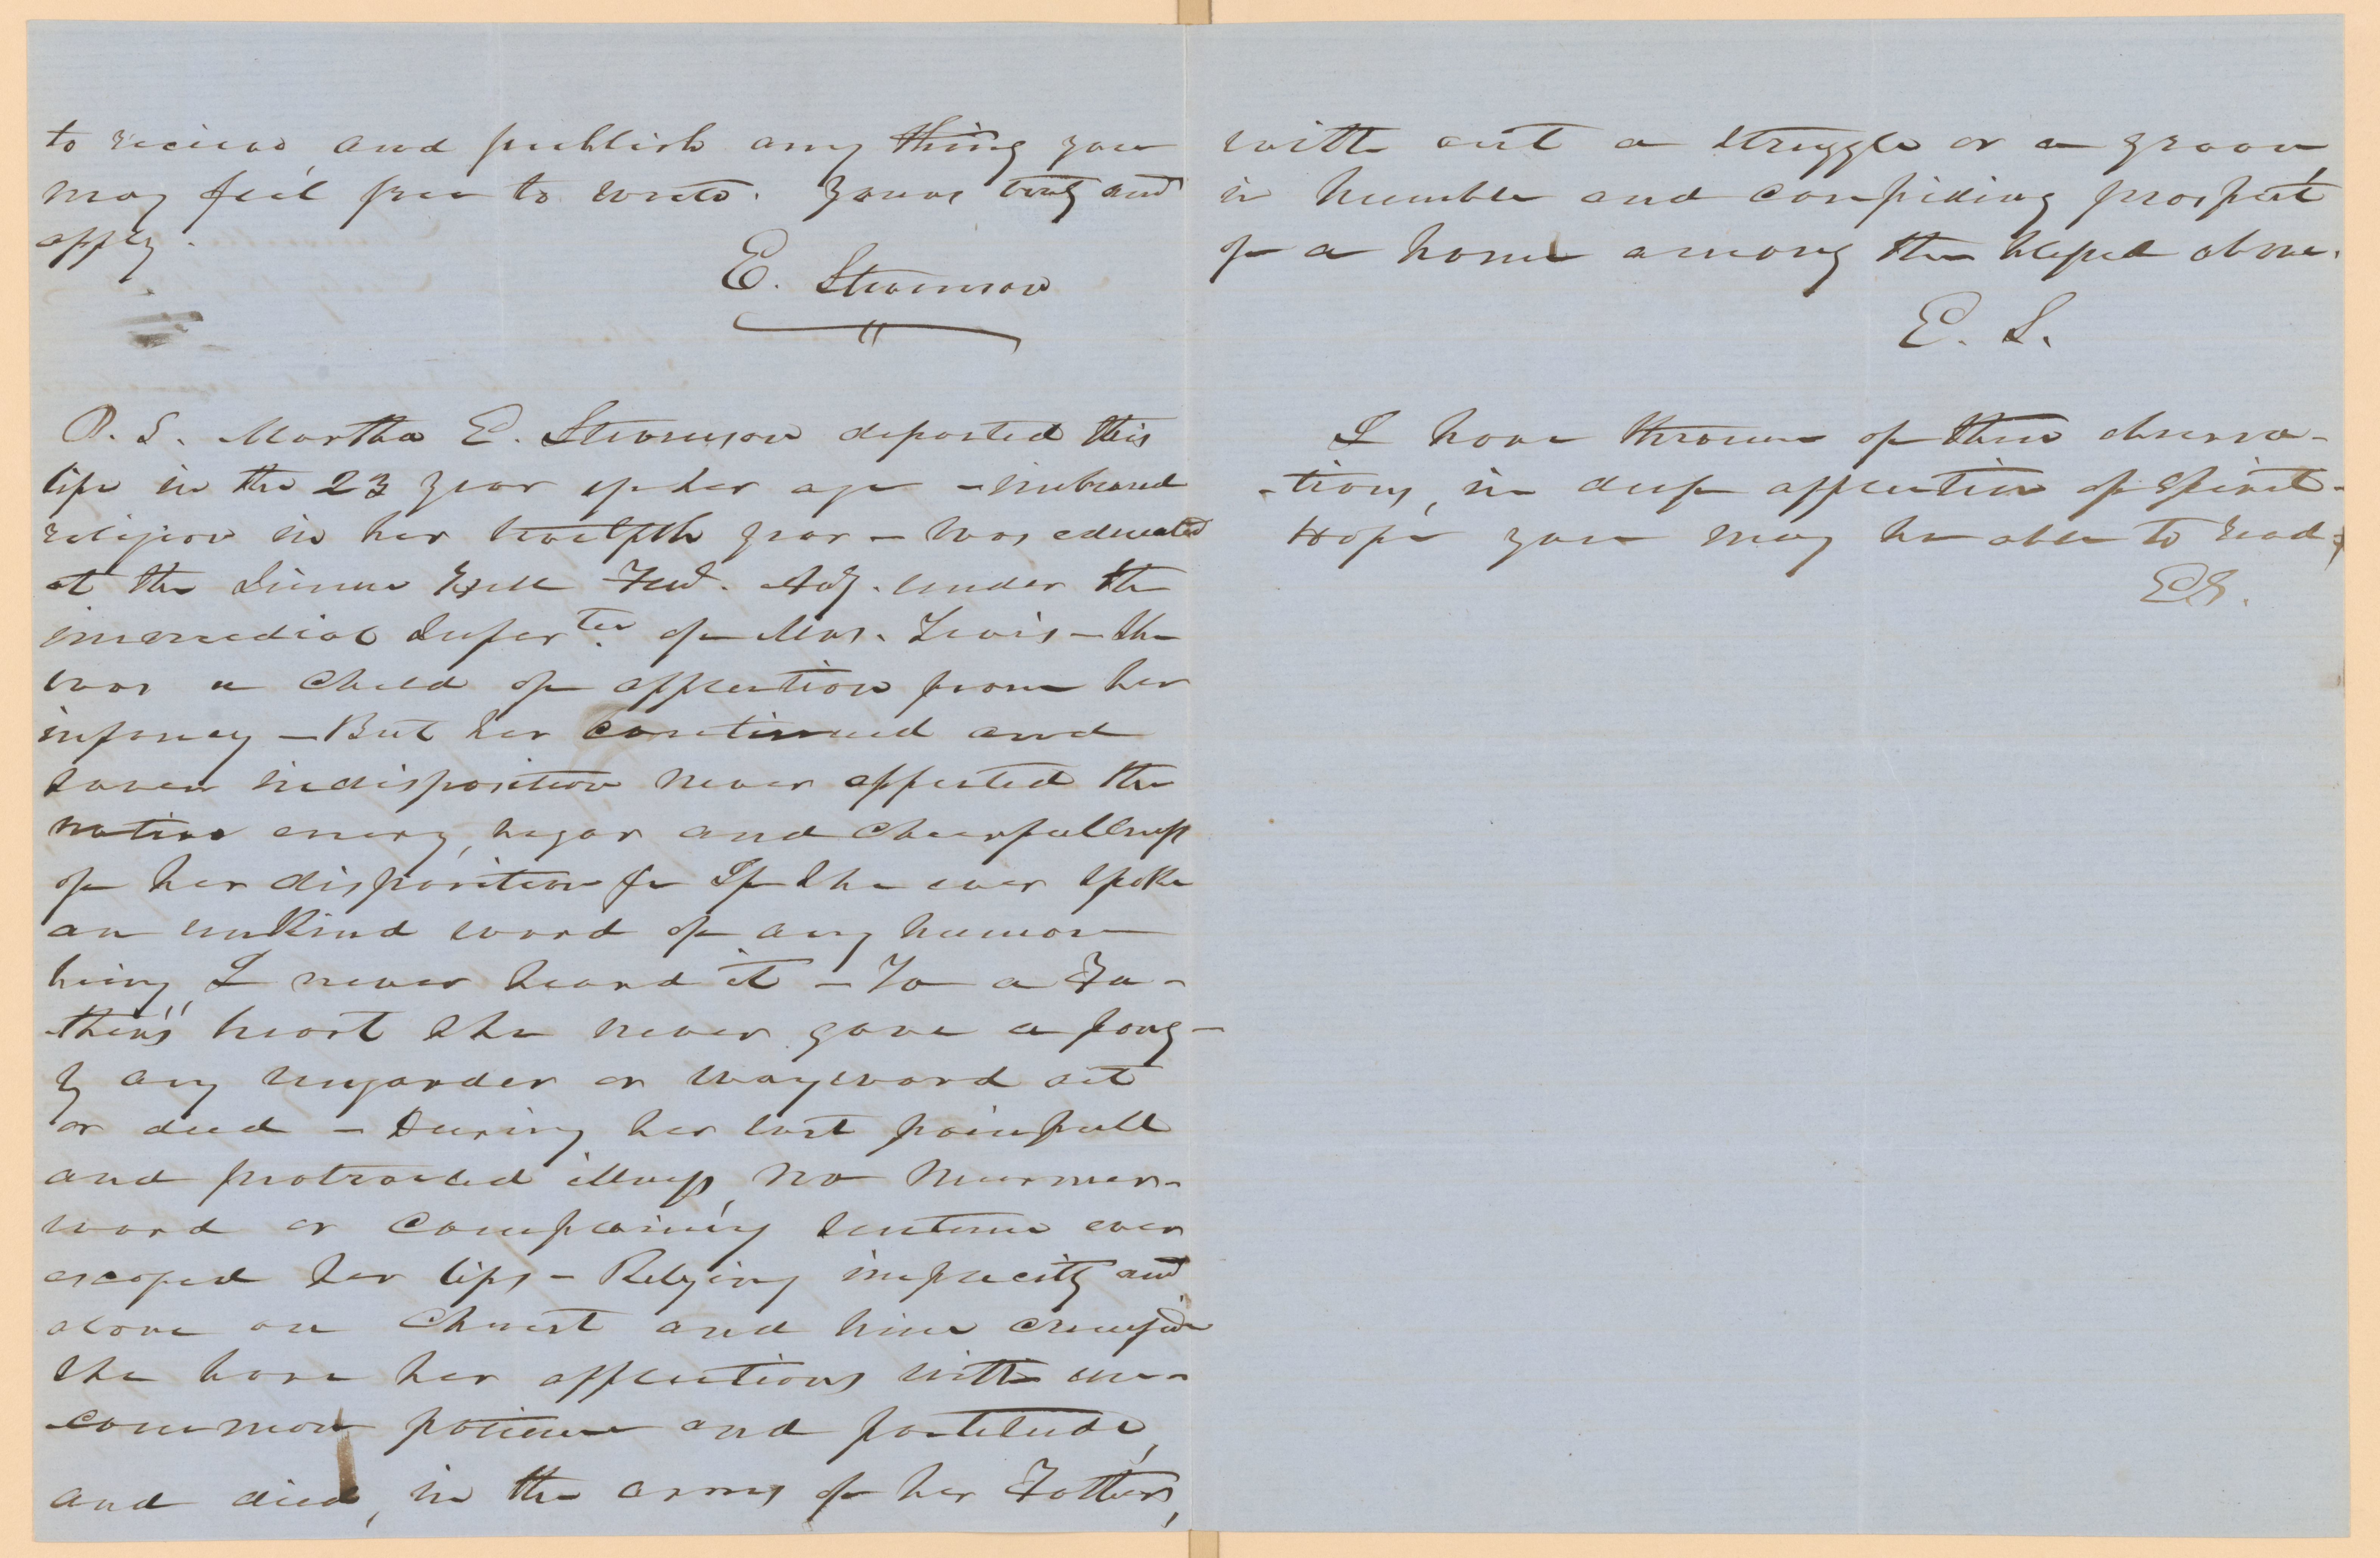 to recieve and publish any thing you
may feel free to write. Yours truly and
affly.
E. Stevenson
P. S. Martha E. Stevenson departed this
life in the 23 year of her age – imbraced
religion in her twelfth year – was educated
at the Science Hill Fem. Ady. under the
immediat Super.ter of Mrs. Tevis – She
was a Child of affliction from her
infancy – But her continued and
indisposition never affected the
native energy, vigor and Chearfullness
of her disposition If She ever spoke
an unkind word of any human
being, I never heard it – To a Fa-
-ther's heart She never gave a pang –
by any or wayward act
or deed – During her last painfull
and protracted illness, no murmer-
word or Complaining Sentence ever
escaped her lips – Relying implicitly and
alone on Christ and him crucified
She bore her afflictions with un-
-common patience and fortitude,
and died, in the arms of her Father,
with out a Struggle or a groan,
in humble and confiding prospect
of a home among the blessed above.
E. S.
I have thrown of these observa-
-tions, in deep affliction of Spirit-
Hope you may be able to read,
ES.